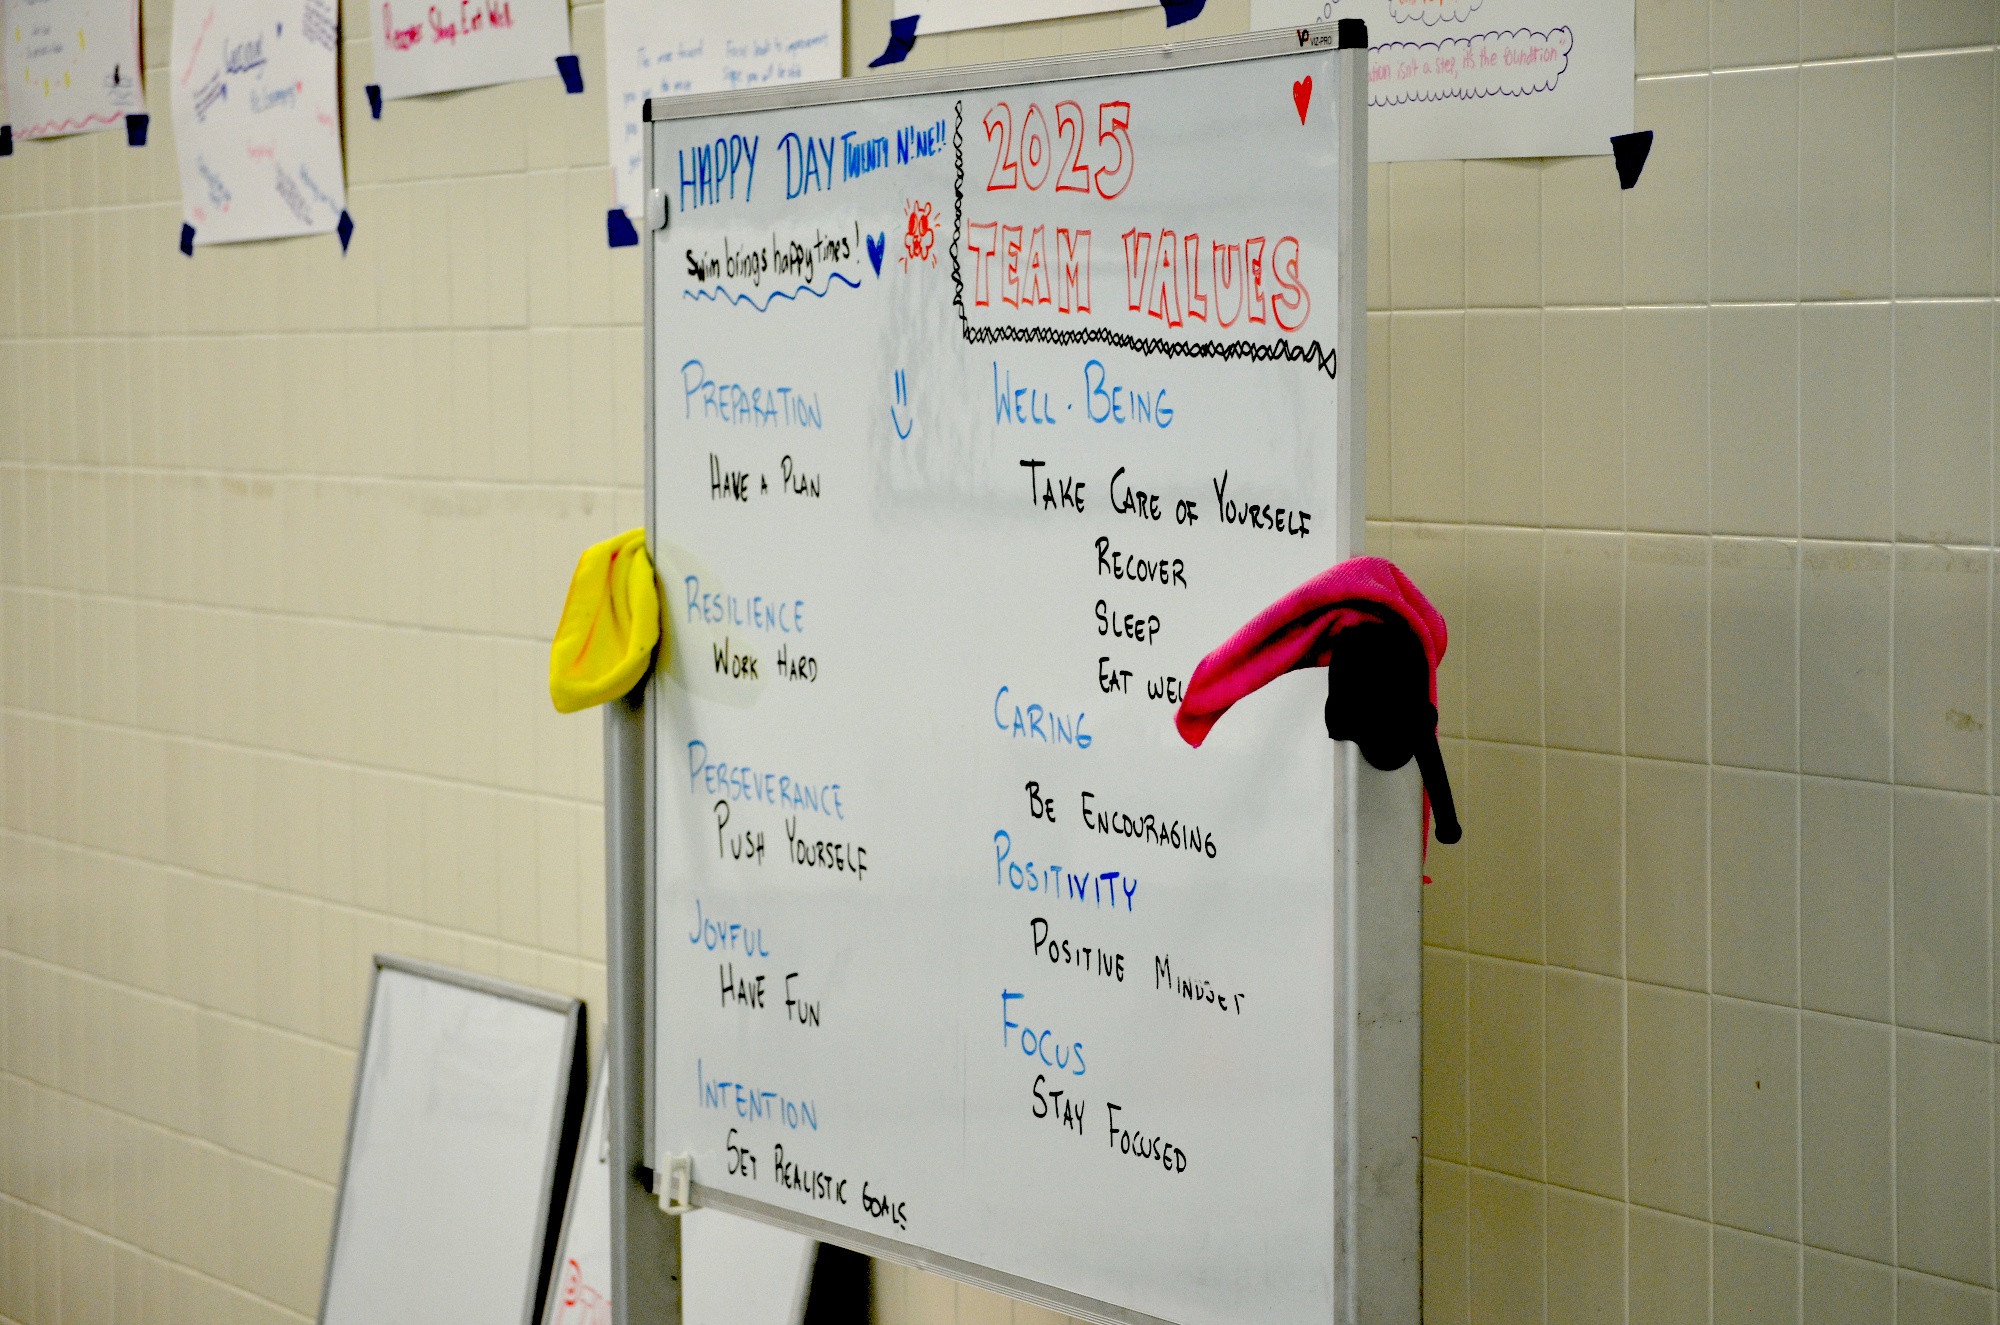 Recover Sleep Eat Well
The more forward
VIZ-PRO
isn't a step, it's the foundtion"
HAPPY DAY TWENTY N!NE!!
Swim brings happy times!
2025
TEAM VALUES
PREPARATION
HAVE A PLAN
RESILIENCE
WORK HARD
PERSEVERANCE
PUSH YOURSELF
JOYFUL
HAVE FUN
INTENTION
SET REALISTIC GOALS
WELL-BEING
TAKE CARE OF YOURSELF
RECOVER
SLEEP
EAT WEL
CARING
BE ENCOURAGING
POSITIVITY
POSITIVE MINDSET
FOCUS
STAY FOCUSED